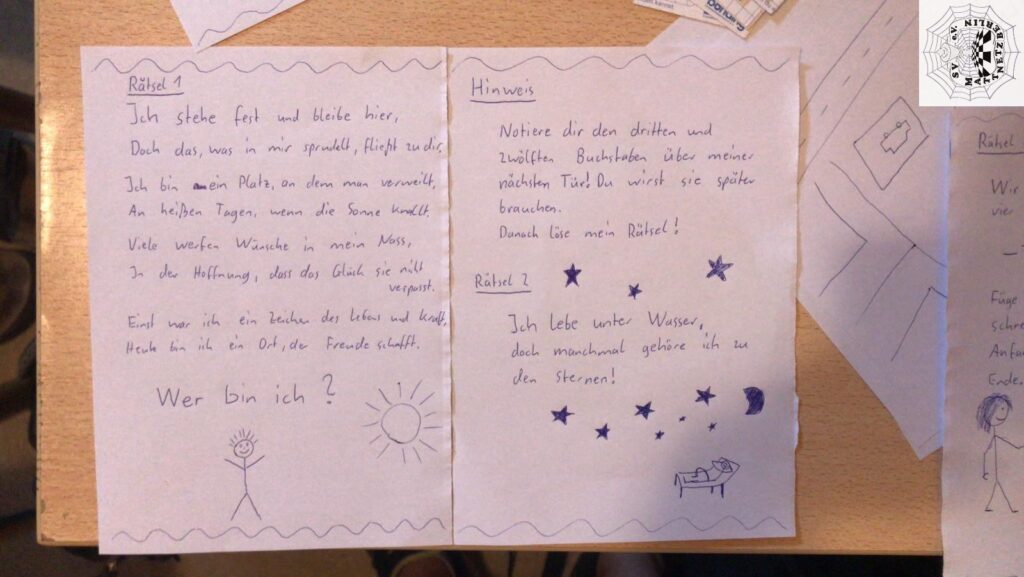 Rätsel 1
Ich stehe fest und bleibe hier,
Doch das, was in mir sprudelt, fließt zu dir.
Ich bin ein Platz, an dem man verweilt,
An heißen Tagen, wenn die Sonne knallt.
Viele werfen Wünsche in mein Nass,
In der Hoffnung, dass das Glück sie nicht
verpasst.
Einst war ich ein Zeichen des Lebens und Kraft,
Heute bin ich ein Ort, der Freude schafft.
Wer bin ich?
Hinweis
Notiere dir den dritten und
zwölften Buchstaben über meiner
nächsten Tür! Du wirst sie später
brauchen.
Danach löse mein Rätsel!
Rätsel 2
Ich lebe unter Wasser,
doch manchmal gehöre ich zu
den Sternen!
Rätsel
Wir
vier
Füge
schre
Anfa
Ende
SV MATTNETZ BERLIN e.V.